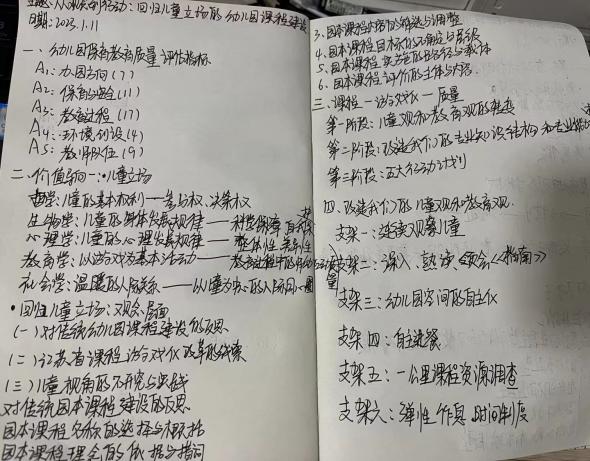 主题:从观念到行动:回归儿童立场的幼儿园课程建设
日期:2023.1.11
一、幼儿园保育教育质量评估指标
A1:办园方向(7)
A2:保育与安全(11)
A3:教育过程(17)
A4:环境创设(4)
A5:教师队伍(9)
二、价值导向一:儿童立场
哲学:儿童的基本权利——参与权、决策权
生物学:儿童的身体发展规律——科学保障
心理学:儿童的心理发展规律——整体性
教育学:以游戏为基本活动——教育过程中的
社会学:温暖的人际关系——以儿童为中心的人际
·回归儿童立场:观念层面
(一)对传统幼儿园课程建设的反思
(二)江苏省课程游戏化改革的线索
(三)儿童视角的研究与实践
对传统园本课程建设的反思
园本课程名称的选择与根据
园本课程理念的依据与指向
3、园本课程内容的筛选与调整
4、园本课程目标的确定与层级
5、园本课程实施的路径与载体
6、园本课程评价的主体与内容
三、课程——游戏化——质量
第一阶段:儿童观和教育观的转变
第二阶段:改造我们的专业知识结构和专业
第三阶段:五大行动计划
四、改造我们的儿童观和教育观
支架一:连续观察儿童
支架二:深入、熟读、领会《指南》
支架三:幼儿园空间的自主化
支架四:自主进餐
支架五:一公里课程资源调查
支架六:弹性作息时间制度